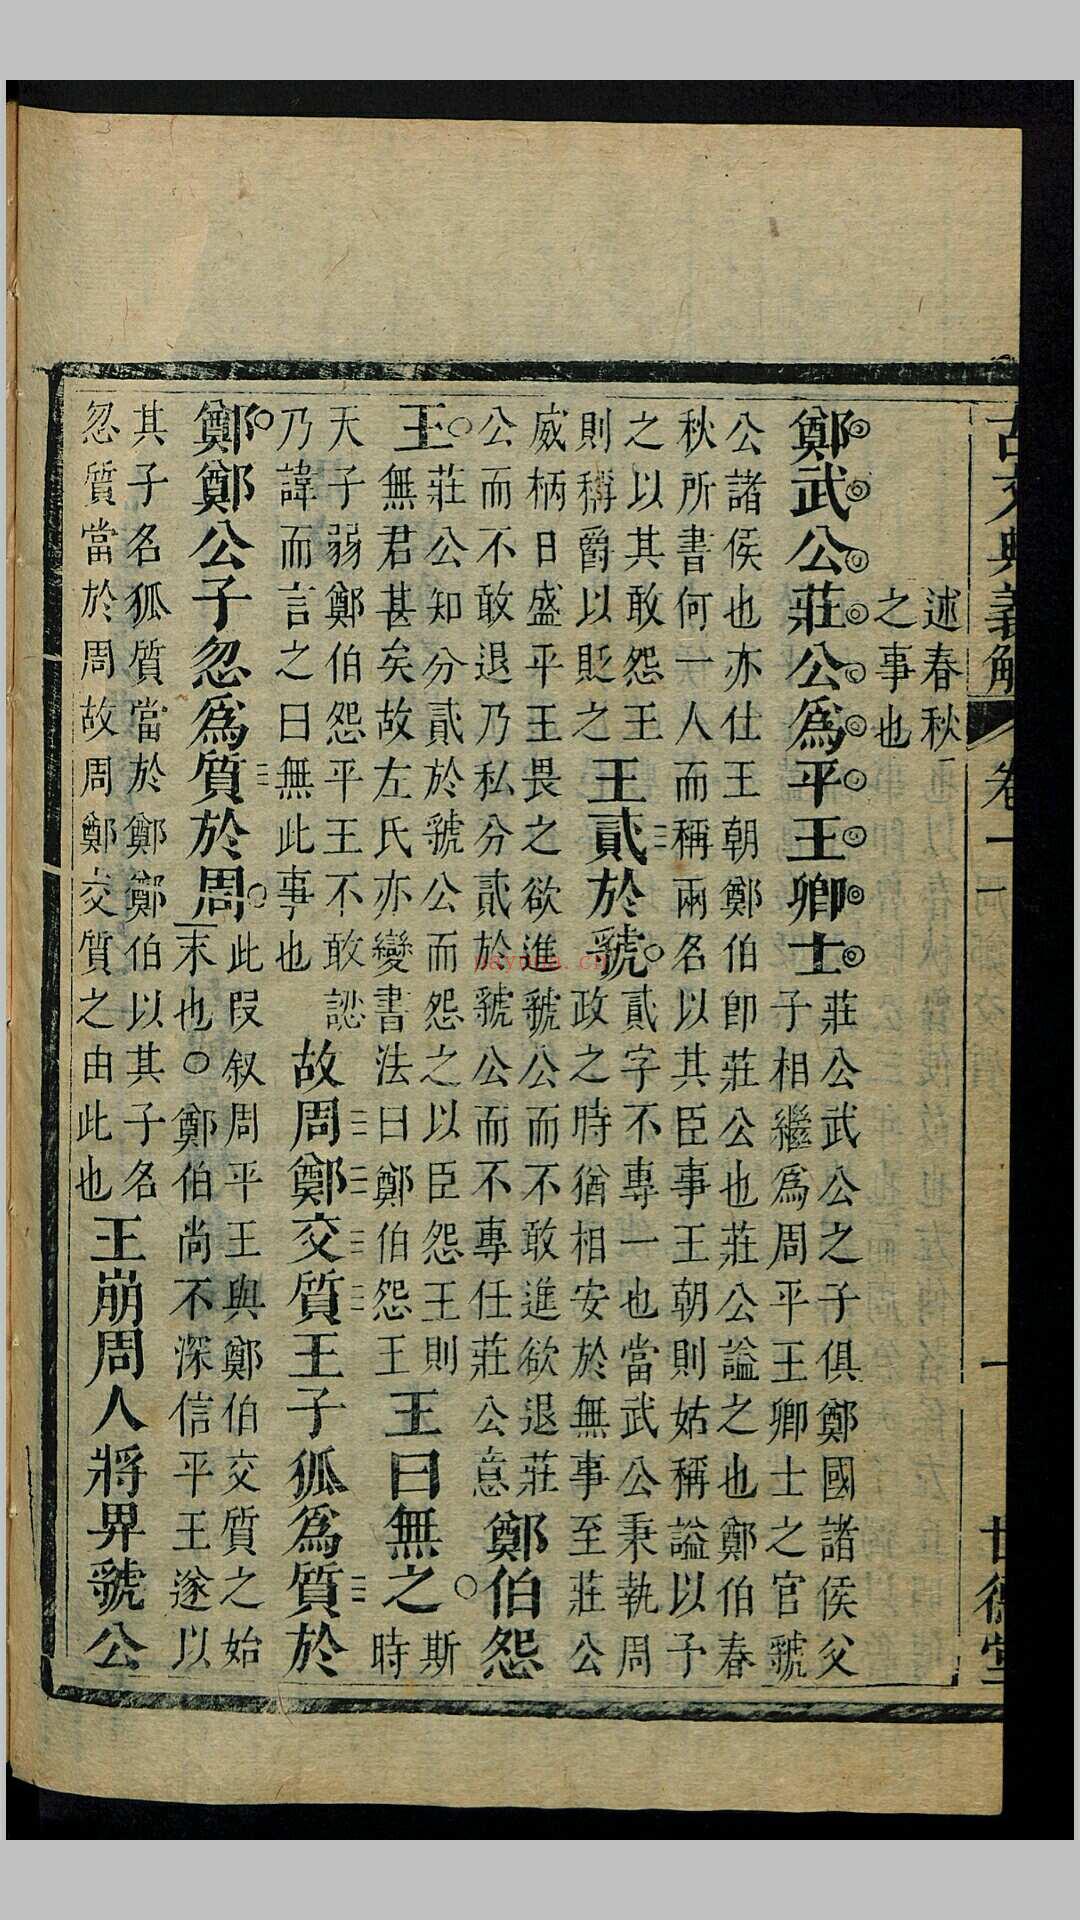 古文典義解 卷一 一 世德堂
述春秋
之事也
鄭武公莊公爲平王卿士
莊公武公之子俱鄭國諸侯父
子相繼爲周平王卿士之官虢
公諸侯也亦仕王朝鄭伯卽莊公也莊公謚之也鄭伯春
秋所書何一人而稱兩名以其臣事王朝則姑稱謚以予
之以其敢怨王
則稱爵以貶之
王貳於虢
貳字不專一也當武公秉執周
政之時猶相安於無事至莊公
威柄日盛平王畏之欲進虢公而不敢進欲退莊
公而不敢退乃私分貳於虢公而不專任莊公意
鄭伯怨
王
莊公知分貳於虢公而怨之以臣怨王則
無君甚矣故左氏亦變書法曰鄭伯怨王
王曰無之
斯
時
天子弱鄭伯怨平王不敢
乃諱而言之曰無此事也
故周鄭交質王子狐爲質於
鄭鄭公子忽爲質於周
此段叙周平王與鄭伯交質之始
末也○鄭伯尚不深信平王遂以
其子名狐質當於鄭鄭伯以其子名
忽質當於周故周鄭交質之由此也
王崩周人將畀虢公